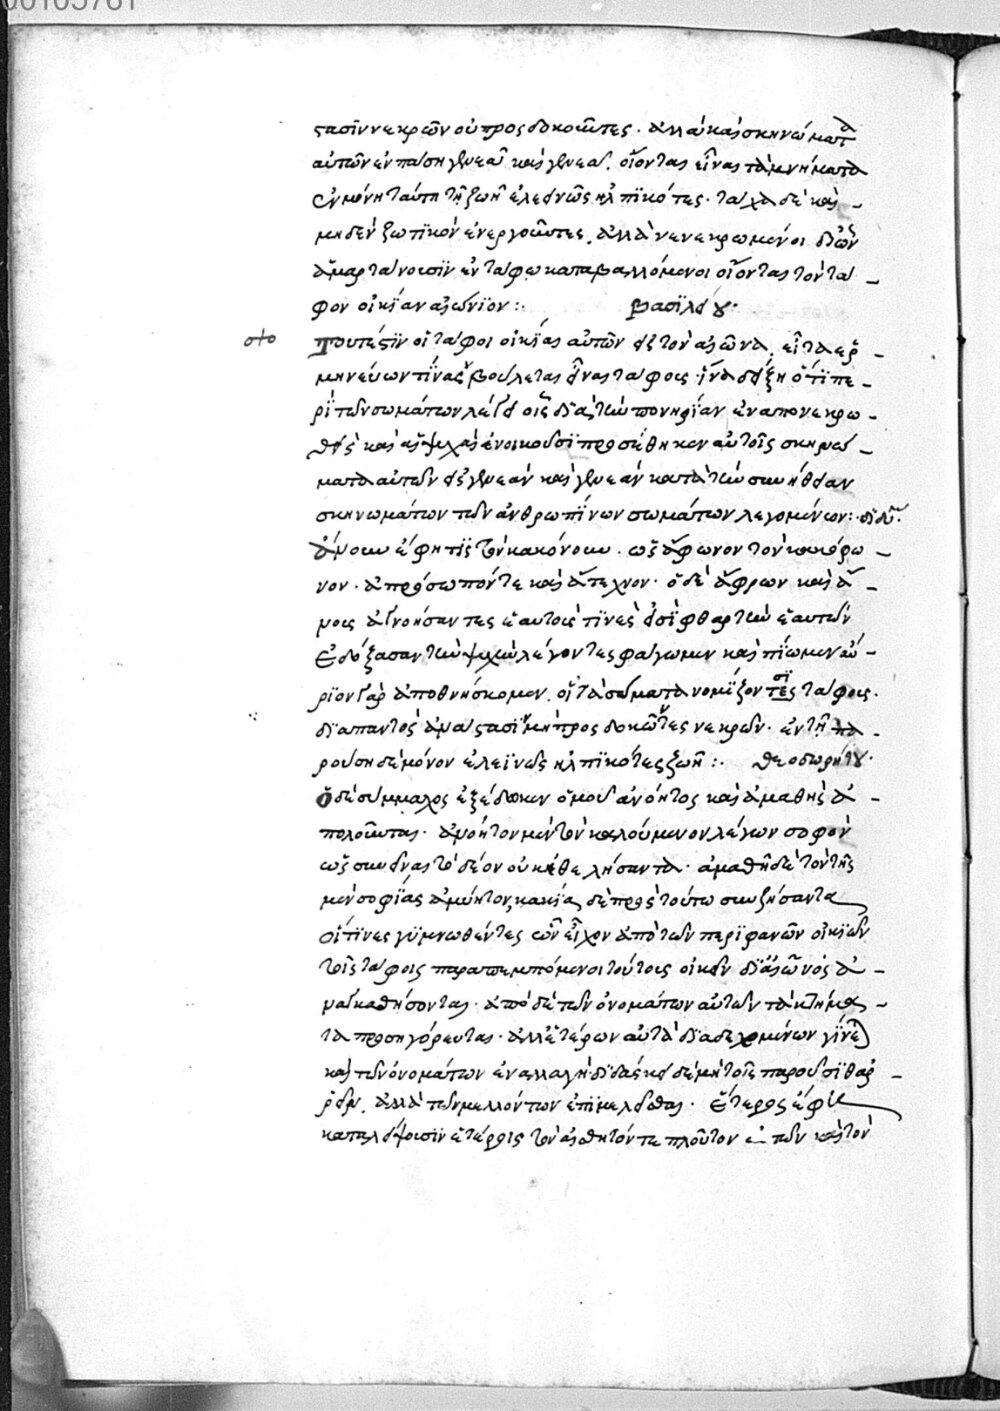 00105761
στασιν νεκρῶν οὐ προσδοκοῦντες · ἀλλὰ καὶ σκηνώματα
αὐτῶν ἐν πάσῃ γενεᾷ καὶ γενεᾷ. οἴονται εἶναι τὰ μνήματα
ἐν μόνῃ ταύτῃ τῇ ζωῇ ἐλεεινῶς ἠλπικότες · τάχα δὲ καὶ
μηδὲν ζωτικὸν ἐνεργοῦντες. ἀλλὰ νενεκρωμένοι δι' ὧν
ἁμαρτάνουσιν ἐν τάφω καταβαλλόμενοι οἴονται τὸν τά
φον οἰκίαν αἰώνιον : Βασιλείου ·
Τουτέστιν οἱ τάφοι οἰκίαι αὐτῶν εἰς τὸν αἰῶνα. εἶτα ἑρ
μηνεύων τίνας βούλεται εἶναι τάφους · ἵνα δείξη ὅτι πε
ρὶ τῶν σωμάτων λέγει οἷς διὰ τὴν πονηρίαν ἐναπονεκρω
θεῖσαι αἱ ψυχαὶ ἐνοικοῦσι προσέθηκεν αὐτοῖς σκηνώ
ματα αὐτῶν εἰς γενεὰν καὶ γενεὰν κατὰ τὴν συνήθειαν
σκηνωμάτων τῶν ἀνθρωπίνων σωμάτων λεγομένων : διδύ.
ἄνουν ἔφη τις τὸν κακόνουν. ὡς ἄφωνον τὸν κακόφω
νον · ἀπρόσωπόν τε καὶ ἄτεχνον · ὁ δὲ ἄφρων καὶ ἄ
νους ἀγνοήσαντες ἑαυτοὺς τίνες εἰσὶ φθαρτὴν ἑαυτῶν
ἐδόξασαν τὴν ψυχὴν λέγοντες φάγωμεν καὶ πίωμεν αὔ
ριον γὰρ ἀποθνήσκομεν. οἳ τὰ σώματα νομίζοντες τάφους ·
διαπαντὸς ἀνάστασιν μὴ προσδοκῶντες νεκρῶν · ἐν τῇ πα
ρούσῃ δὲ μόνον ἐλεινῶς ἠλπικότες ζωῇ : Θεοδωρήτου ·
Ὁ δὲ σύμμαχος ἐξέδωκεν ὁμοῦ ἀνόητος καὶ ἀμαθὴς ἀ
πολοῦνται · ἀνόητον μὲν τὸν καλούμενον λέγων σοφὸν
ὡς συνεῖναι τὸ δέον οὐκ ἐθελήσαντα · ἀμαθῆ δὲ τὸν τῆς
μὲν σοφίας ἀμύητον, κακία δὲ πρὸς τούτω συζήσαντα
οἵτινες γυμνωθέντες ὧν εἶχον ἀπὸ τῶν περιφανῶν οἰκιῶν
τοῖς τάφοις παραπεμπόμενοι τούτους οἰκεῖν δι' αἰῶνος ἀ
ναγκασθήσονται · ἀπὸ δὲ τῶν ὀνομάτων αὐτῶν τὰ κτήμα
τα προσηγόρευται · ἀλλ' ἑτέρων αὐτὰ διαδεχομένων γίνεται
καὶ τῶν ὀνομάτων ἐναλλαγὴ διδάσκει δὲ μὴ τοῖς παροῦσι θαρ
ρεῖν. ἀλλὰ τῶν μελλόντων ἐπιμελεῖσθαι. Ἕτερος ἔφη
καταλείψουσιν ἑτέροις τὸν αἰσθητόν τε πλοῦτον αὐτῶν καὶ τὸν